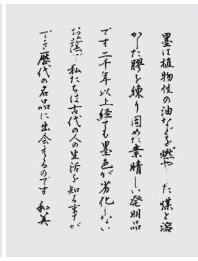 墨は植物性の油などを燃やした煤と溶
かした膠を練り固めた素晴しい発明品
です二千年以上経ても墨色が劣化しない
お蔭で私たちは古代の人の生活を知る事が
でき歴代の名品に出会えるのです 和美